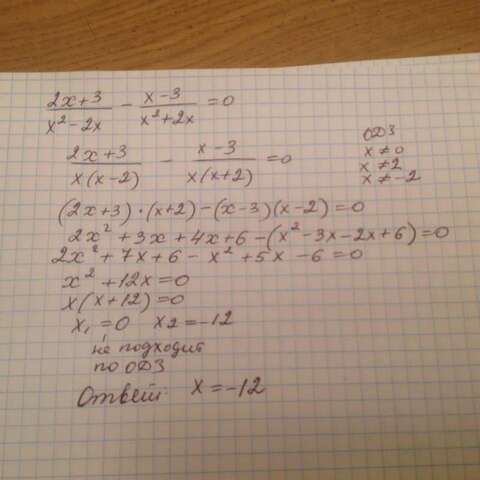 (2x+3)/(x²-2x) - (x-3)/(x²+2x) = 0
(2x+3)/(x(x-2)) - (x-3)/(x(x+2)) = 0
ОДЗ
x≠0
x≠2
x≠-2
(2x+3)·(x+2)-(x-3)(x-2)=0
2x²+3x+4x+6-(x²-3x-2x+6)=0
2x²+7x+6-x²+5x-6=0
x²+12x=0
x(x+12)=0
x₁=0 x₂=-12
не подходит
по ОДЗ
Ответ: x=-12